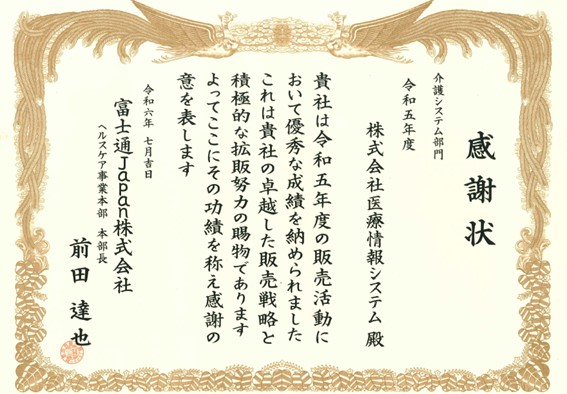 感謝状
介護システム部門
令和五年度
株式会社医療情報システム 殿
貴社は令和五年度の販売活動に
おいて優秀な成績を納められました
これは貴社の卓越した販売戦略と
積極的な拡販努力の賜物であります
よってここにその功績を称え感謝の
意を表します
令和六年 七月吉日
富士通Japan株式会社
ヘルスケア事業本部 本部長
前田 達也